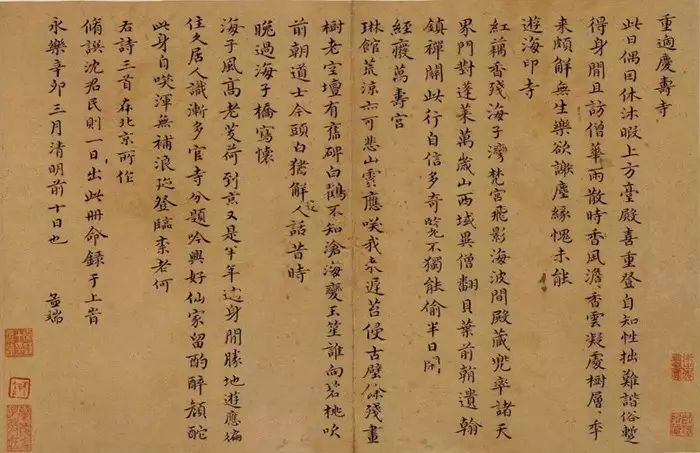 重過慶壽寺
此日偶因休沐暇上方臺殿喜重登自知性拙難諧俗暫
得身閒且訪僧華雨散時香風澹、香雲凝處樹層、年
来頗解無生樂欲謝塵緣愧未能
遊海印寺
紅藕香殘海子灣梵宮飛影海波間殿藏兜率諸天
界門對蓬萊萬歲山西域異僧翻貝葉前朝遺翰
鎮禪關此行自信多奇 不獨能偷半日閒
經廢萬壽宮
琳館荒涼亦可悲山靈應咲我来遲苔侵古壁餘殘畫
樹老空壇有舊碑白鶴不知滄海變玉笙誰向碧桃吹
前朝道士今頭白猶解人家話昔時
晚過海子橋寫懷
海子風高老芰荷到京又是半年 身閒勝地遊應徧
住久居人識漸多官寺分題吟興好仙家留酌醉顏酡
此身自咲渾無補浪跡登臨柰老何
右詩三首在北京所作
脩譔沈君民則一日出此册命錄于上旹
永樂辛卯三月清明前十日也
孟端